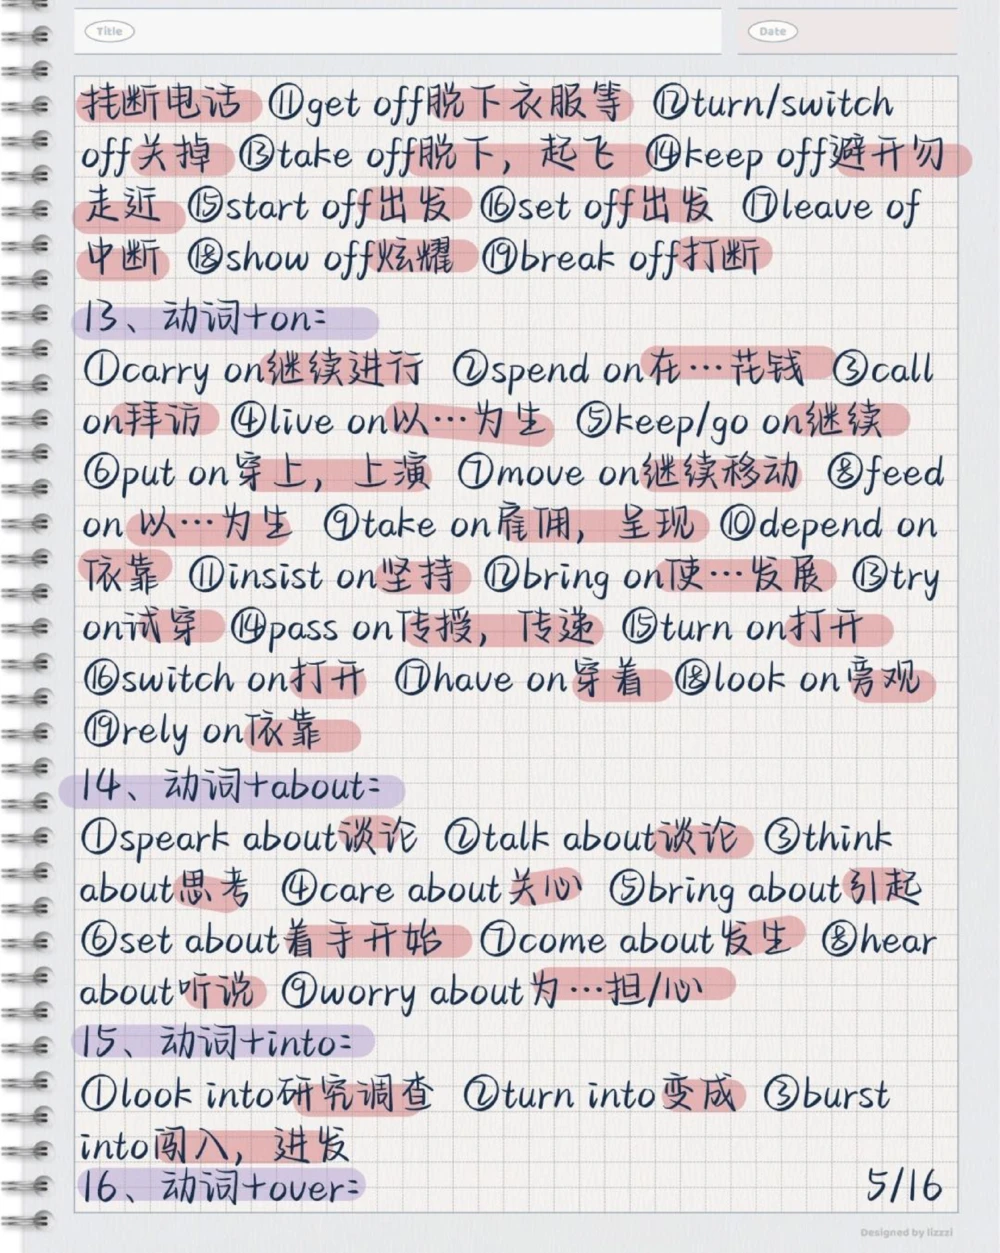 Title
Date
挂断电话 ⑪get off脱下衣服等 ⑫turn/switch
off关掉 ⑬take off脱下，起飞 ⑭keep off避开勿
走近 ⑮start off出发 ⑯set off出发 ⑰leave of
中断 ⑱show off炫耀 ⑲break off打断
13、动词+on:
①carry on继续进行 ②spend on在…花钱 ③call
on拜访 ④live on以…为生 ⑤keep/go on继续
⑥put on穿上，上演 ⑦move on继续移动 ⑧feed
on以…为生 ⑨take on雇佣，呈现 ⑩depend on
依靠 ⑪insist on坚持 ⑫bring on使…发展 ⑬try
on试穿 ⑭pass on传授，传递 ⑮turn on打开
⑯switch on打开 ⑰have on穿着 ⑱look on旁观
⑲rely on依靠
14、动词+about:
①speark about谈论 ②talk about谈论 ③think
about思考 ④care about关心 ⑤bring about引起
⑥set about着手开始 ⑦come about发生 ⑧hear
about听说 ⑨worry about为…担/心
15、动词+into:
①look into研究调查 ②turn into变成 ③burst
into闯入，迸发
16、动词+over:
5/16
Designed by lizzzi